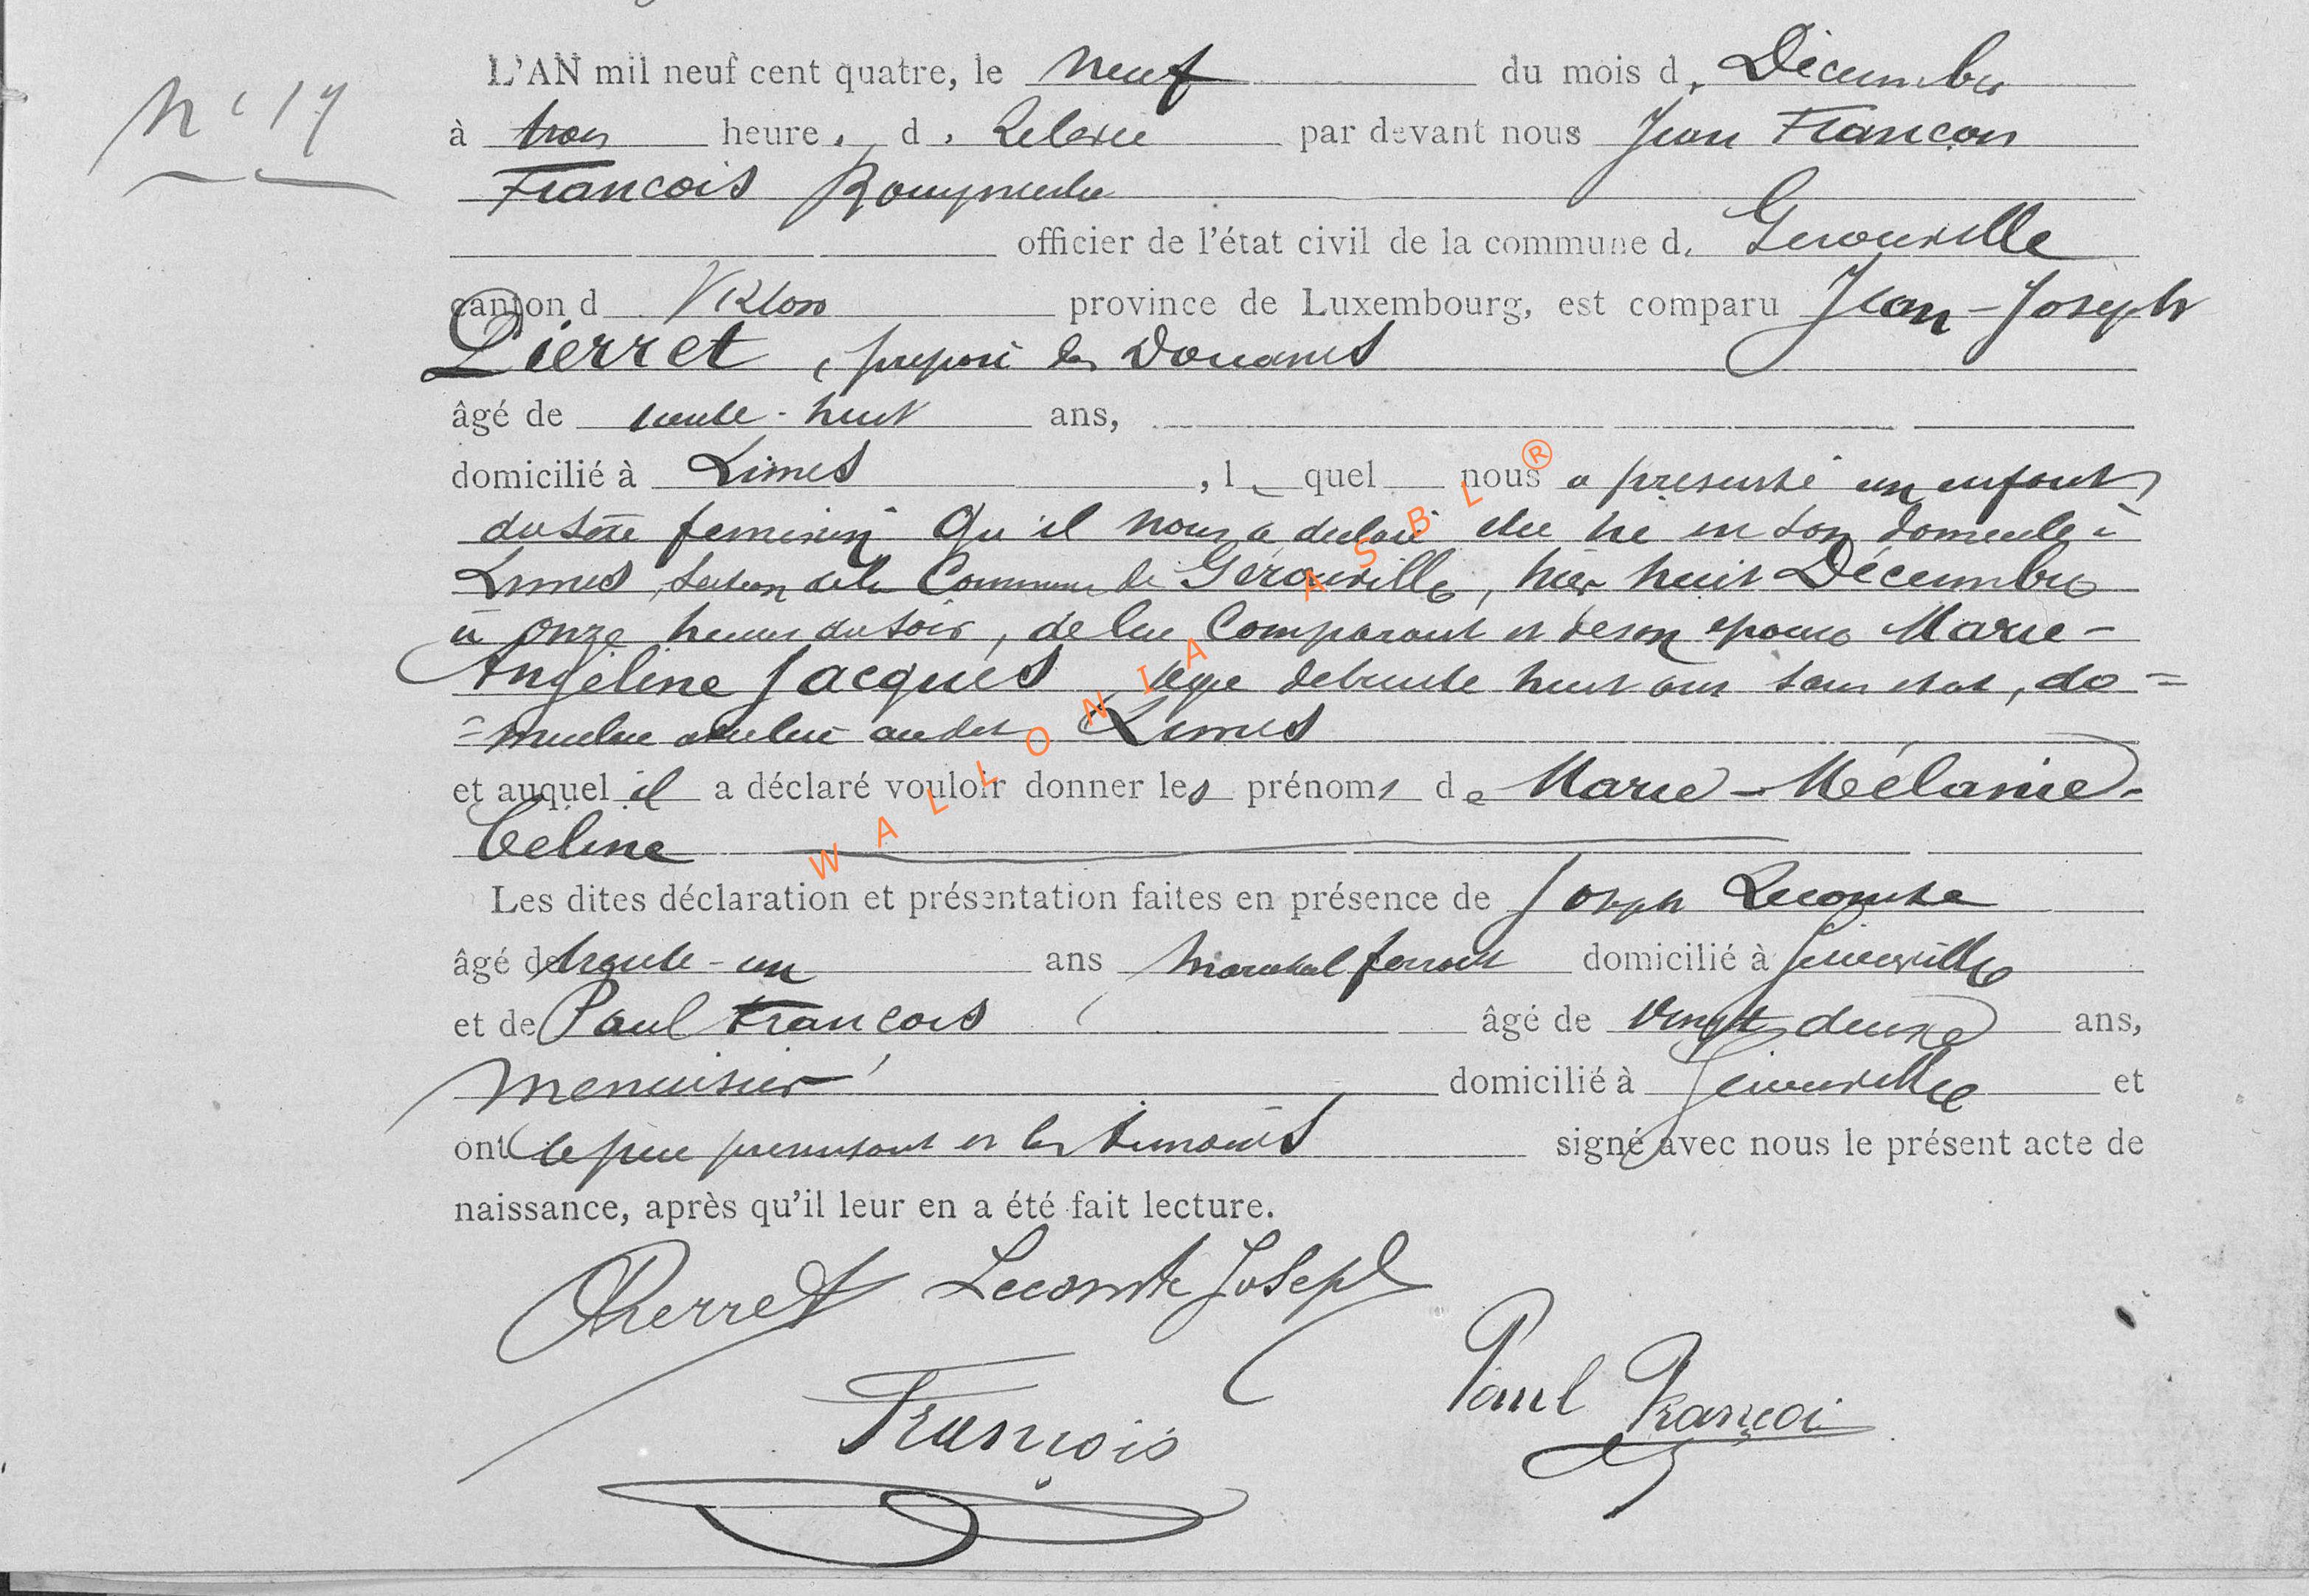 N° 17
L'AN mil neuf cent quatre, le neuf du mois de Décembre
à trois heures de Relevée par devant nous Jean François
François Bourgmestre
officier de l'état civil de la commune de Gerouville
canton d Virton province de Luxembourg, est comparu Jean-Joseph
Pierret, preposé des Douanes
âgé de trente-huit ans,
domicilié à Limes, le quel nous a presenté un enfant
du sexe feminin qu'il nous a declaré etre né en son domicile à
Limes, section de la Commune de Gérouville, hier huit Décembre
à onze heures du soir, de lui Comparant et de son epouse Marie-
Angéline Jacques agee de trente huit ans sans etat, do=
=miciliee avec lui audit Limes
et auquel il a déclaré vouloir donner les prénoms de Marie-Mélanie-
Celine
Les dites déclaration et présentation faites en présence de Joseph Lecomte
âgé de trente-un ans marechal ferrant domicilié à Gerouville
et de Paul François âgé de vingt deux ans,
menuisier domicilié à Gerouville et
ont le père presentant et les temoins signé avec nous le présent acte de
naissance, après qu'il leur en a été fait lecture.
Pierret Lecomte Joseph
François Paul François
WALLONIA ASBL ®